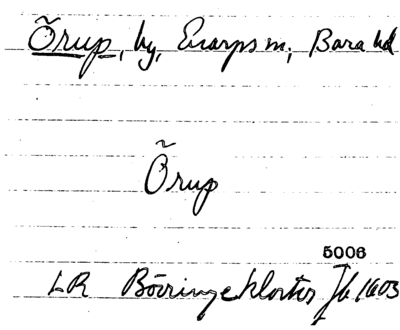 Õrup, by, Esarps sn, Bara hd
Õrup
5006
LR Börringekloster Jb 1603